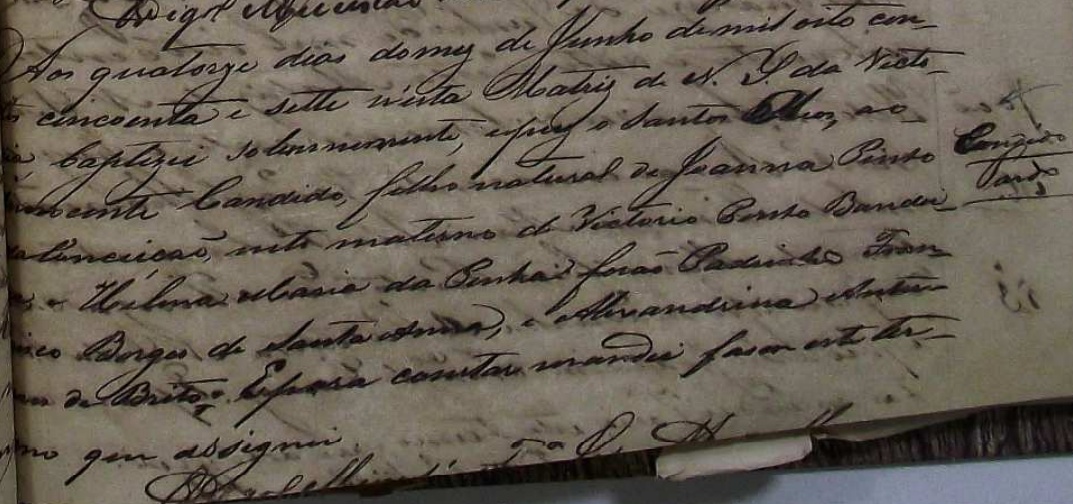 Aos quatorze dias do mez de Junho de mil oito cen-
cincoenta e sette n'esta Matriz de N. S. da Victo-
Baptizei solemnemente, e puz o Santos Oleos, ao
nocente Candido, filho natural de Joanna Pinto
Conceicaõ, neto materno de Victorio Pinto Bandei-
e Helena Maria da Penha: foraõ Padrinhos Fran-
co Borges de Santa Anna, e Alexandrina Anto-
de Brito. E para constar mandei fazer este ter-
mo que assignei.
Candido
Pardo